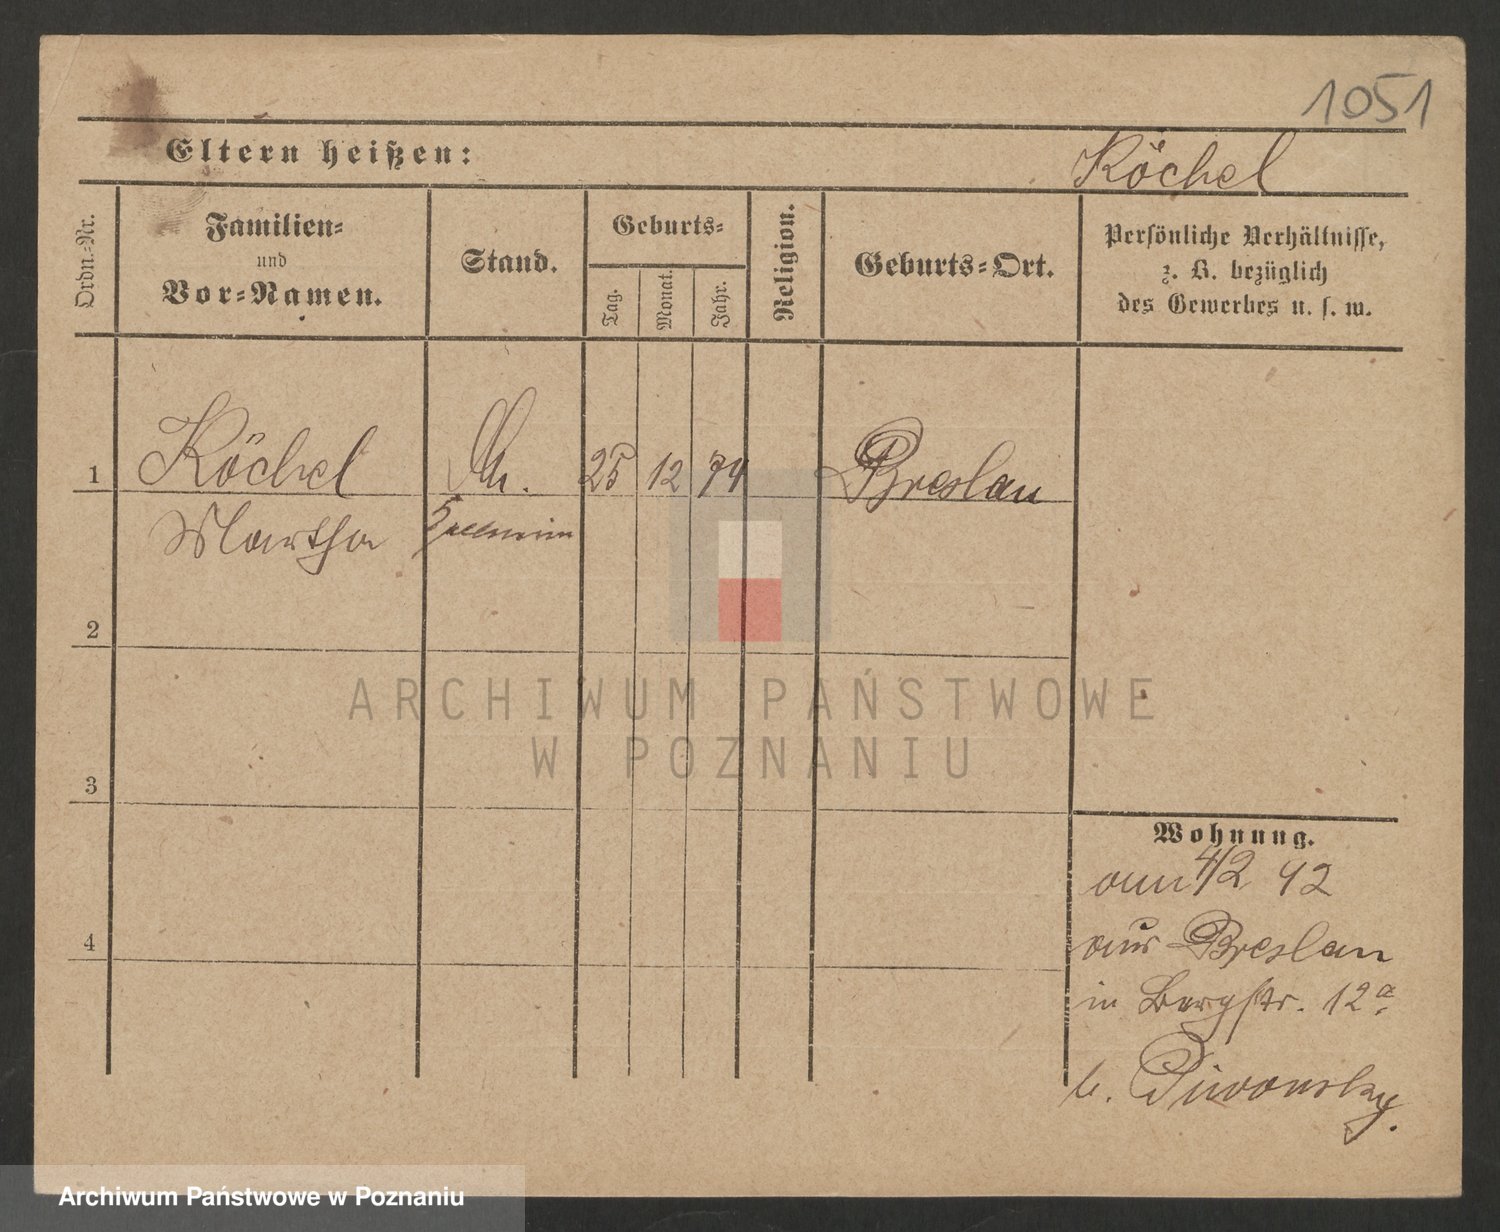 1051
Eltern heißen:
Köchel
Ordn.-Nr.
Familien-
und
Vor-Namen.
Stand.
Geburts-
Tag.
Monat.
Jahr.
Religion.
Geburts-Ort.
Persönliche Verhältnisse,
z. B. bezüglich
des Gewerbes u. s. w.
1
Köchel
25 12 74
Breslau
Martha
2
3
4
Wohnung.
am 4/2 92
aus Breslau
in Bergstr. 12a
b. Piwonsky.
ARCHIWUM PAŃSTWOWE
W POZNANIU
Archiwum Państwowe w Poznaniu